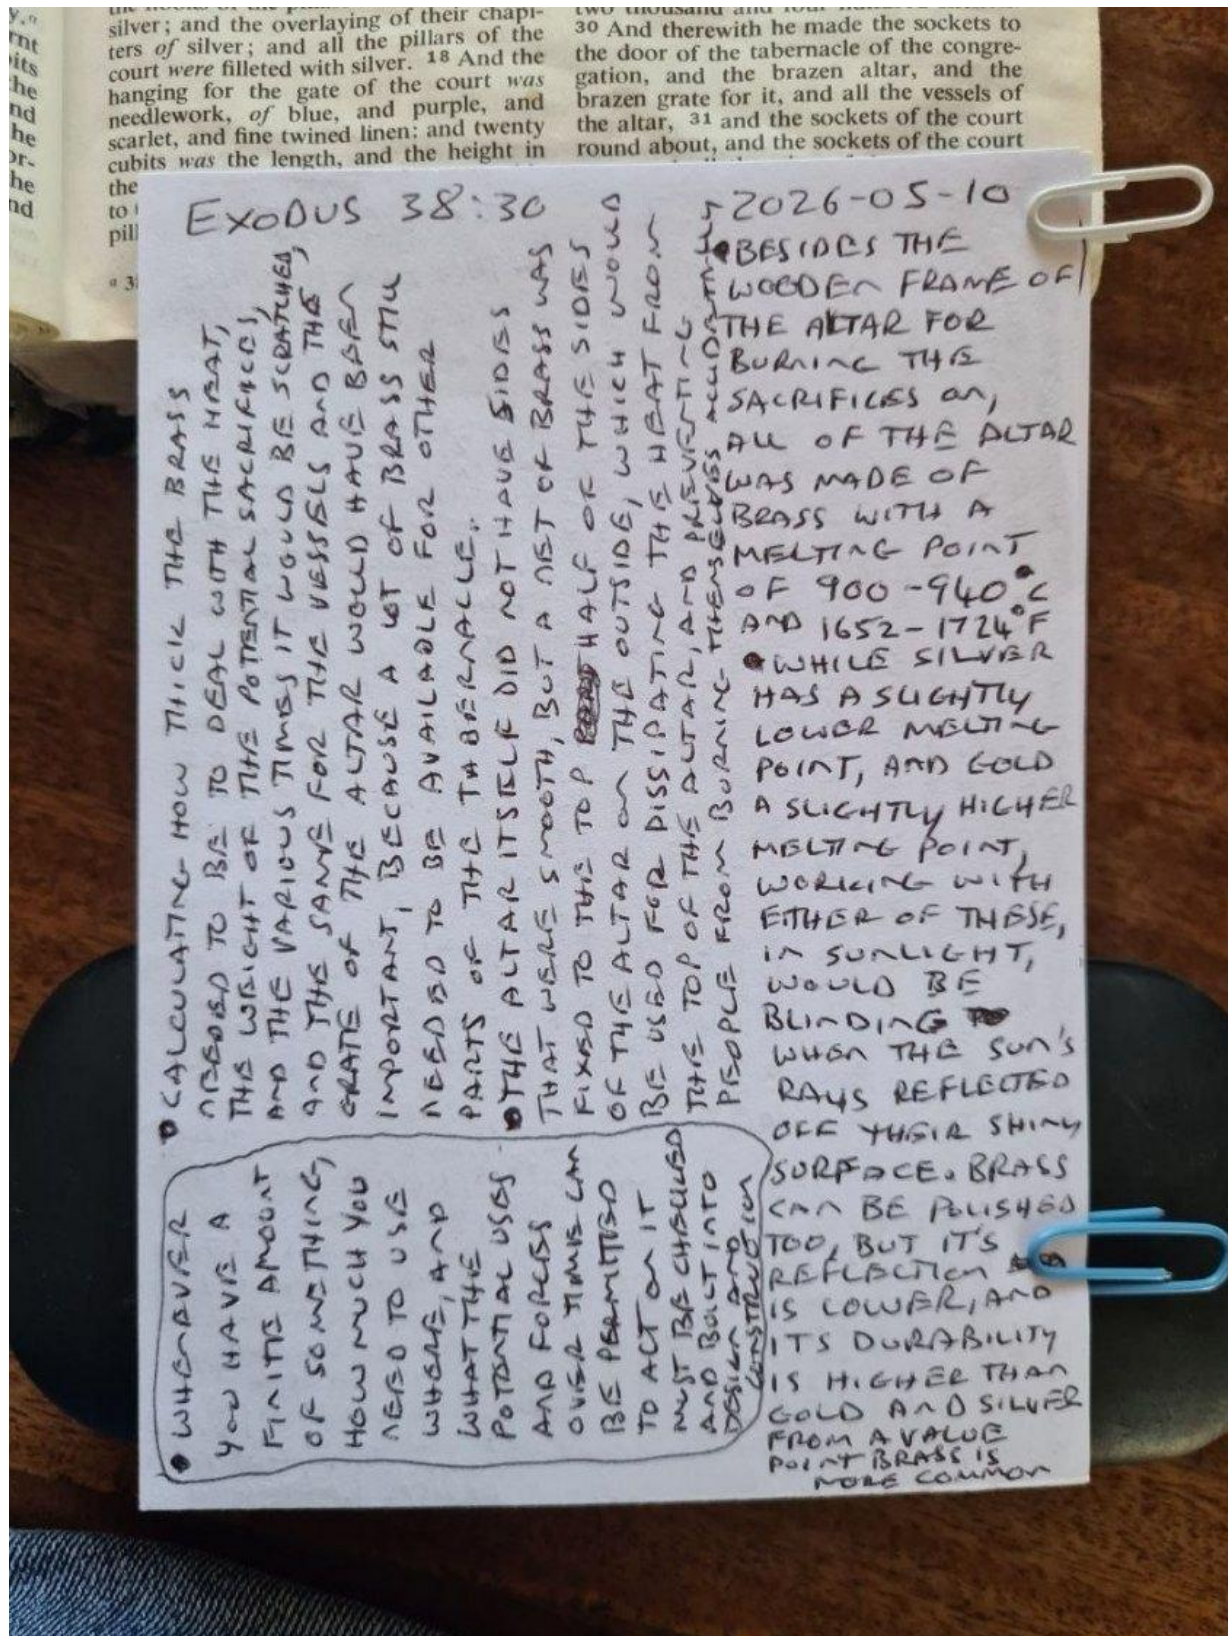 silver; and the overlaying of their chapi-
ters of silver; and all the pillars of the
court were filleted with silver. 18 And the
hanging for the gate of the court was
needlework, of blue, and purple, and
scarlet, and fine twined linen: and twenty
cubits was the length, and the height in
the
to
pill
two thousand and four
30 And therewith he made the sockets to
the door of the tabernacle of the congre-
gation, and the brazen altar, and the
brazen grate for it, and all the vessels of
the altar, 31 and the sockets of the court
round about, and the sockets of the court
EXODUS 38:30
2026-05-10
• BESIDES THE
WOODEN FRAME OF
THE ALTAR FOR
BURNING THE
SACRIFICES ON,
ALL OF THE ALTAR
WAS MADE OF
BRASS WITH A
MELTING POINT
OF 900-940°C
AND 1652-1724°F
• WHILE SILVER
HAS A SLIGHTLY
LOWER MELTING
POINT, AND GOLD
A SLIGHTLY HIGHER
MELTING POINT,
WORKING WITH
EITHER OF THESE,
IN SUNLIGHT,
WOULD BE
BLINDING
WHEN THE SUN'S
RAYS REFLECTED
OFF THEIR SHINY
SURFACE. BRASS
CAN BE POLISHED
TOO, BUT IT'S
REFLECTION
IS LOWER, AND
ITS DURABILITY
IS HIGHER THAN
GOLD AND SILVER
FROM A VALUE
POINT BRASS IS
MORE COMMON
• CALCULATING HOW THICK THE BRASS
NEEDED TO BE TO DEAL WITH THE HEAT,
THE WEIGHT OF THE POTENTIAL SACRIFICES,
AND THE VARIOUS TIMES IT WOULD BE SCRATCHED,
AND THE SAME FOR THE VESSELS AND THE
GRATE OF THE ALTAR WOULD HAVE BEEN
IMPORTANT, BECAUSE A LOT OF BRASS STILL
NEEDED TO BE AVAILABLE FOR OTHER
PARTS OF THE TABERNACLE.
• THE ALTAR ITSELF DID NOT HAVE SIDES
THAT WERE SMOOTH, BUT A NET OF BRASS WAS
FIXED TO THE TOP HALF OF THE SIDES
OF THE ALTAR ON THE OUTSIDE, WHICH WOULD
BE USED FOR DISSIPATING THE HEAT FROM
THE TOP OF THE ALTAR, AND PREVENTING
PEOPLE FROM BURNING THEMSELVES ACCIDENTALLY
• WHENEVER
YOU HAVE A
FINITE AMOUNT
OF SOMETHING,
HOW MUCH YOU
NEED TO USE
WHERE, AND
WHAT THE
POTENTIAL USES
AND FORCES
OVER TIME CAN
BE PERMITTED
TO ACT ON IT
MUST BE CHECKED
AND BUILT INTO
DESIGN AND
CONSTRUCTION